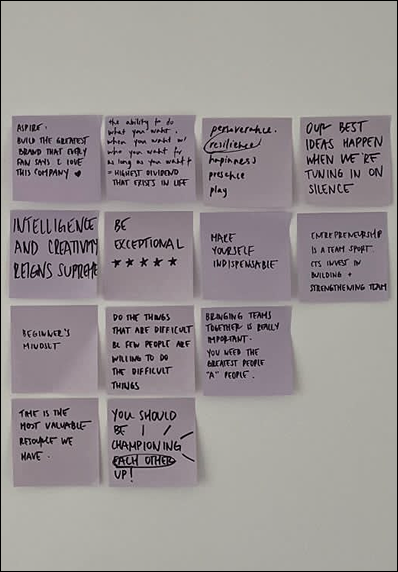 ASPIRE:
BUILD THE GREATEST
BRAND THAT EVERY
FAN SAYS I LOVE
THIS COMPANY ♥
the ability to do
what you want,
when you want w/
who you want for
as long as you want
= HIGHEST DIVIDEND
THAT EXISTS IN LIFE
perseverance.
resilience
happiness
presence
play
OUR BEST
IDEAS HAPPEN
WHEN WE'RE
TUNING IN ON
SILENCE
INTELLIGENCE
AND CREATIVITY
REIGNS SUPREME
BE
EXCEPTIONAL
★★★★★
MAKE
YOURSELF
INDISPENSABLE
ENTREPRENEURSHIP
IS A TEAM SPORT.
ITS INVEST IN
BUILDING +
STRENGTHENING TEAM
BEGINNER'S
MINDSET
DO THE THINGS
THAT ARE DIFFICULT
BC FEW PEOPLE ARE
WILLING TO DO
THE DIFFICULT
THINGS
BRINGING TEAMS
TOGETHER IS REALLY
IMPORTANT.
YOU NEED THE
GREATEST PEOPLE
"A" PEOPLE.
TIME IS THE
MOST VALUABLE
RESOURCE WE
HAVE.
YOU SHOULD
BE
CHAMPIONING
EACH OTHER
UP!